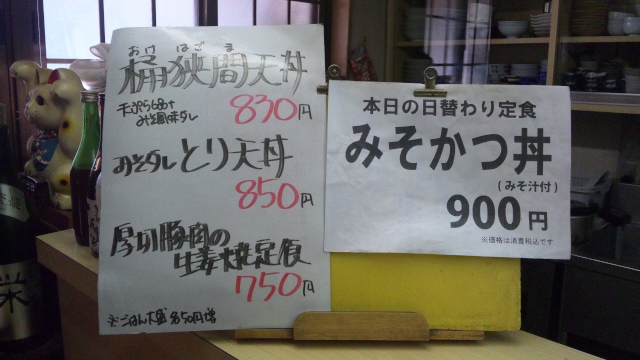 おけはざま
桶狭間天丼
天ぷら6品付
みそ風味タレ
830円
みそタレとり天丼
850円
厚切豚肉の
生姜焼定食
750円
※ごはん大盛 50円増
本日の日替わり定食
みそかつ丼
(みそ汁付)
900円
※価格は消費税込です
栄